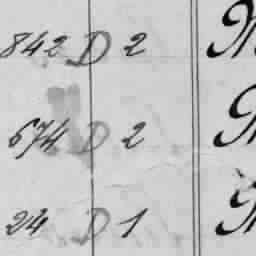 842 D 2
674 D 2
24 D 1